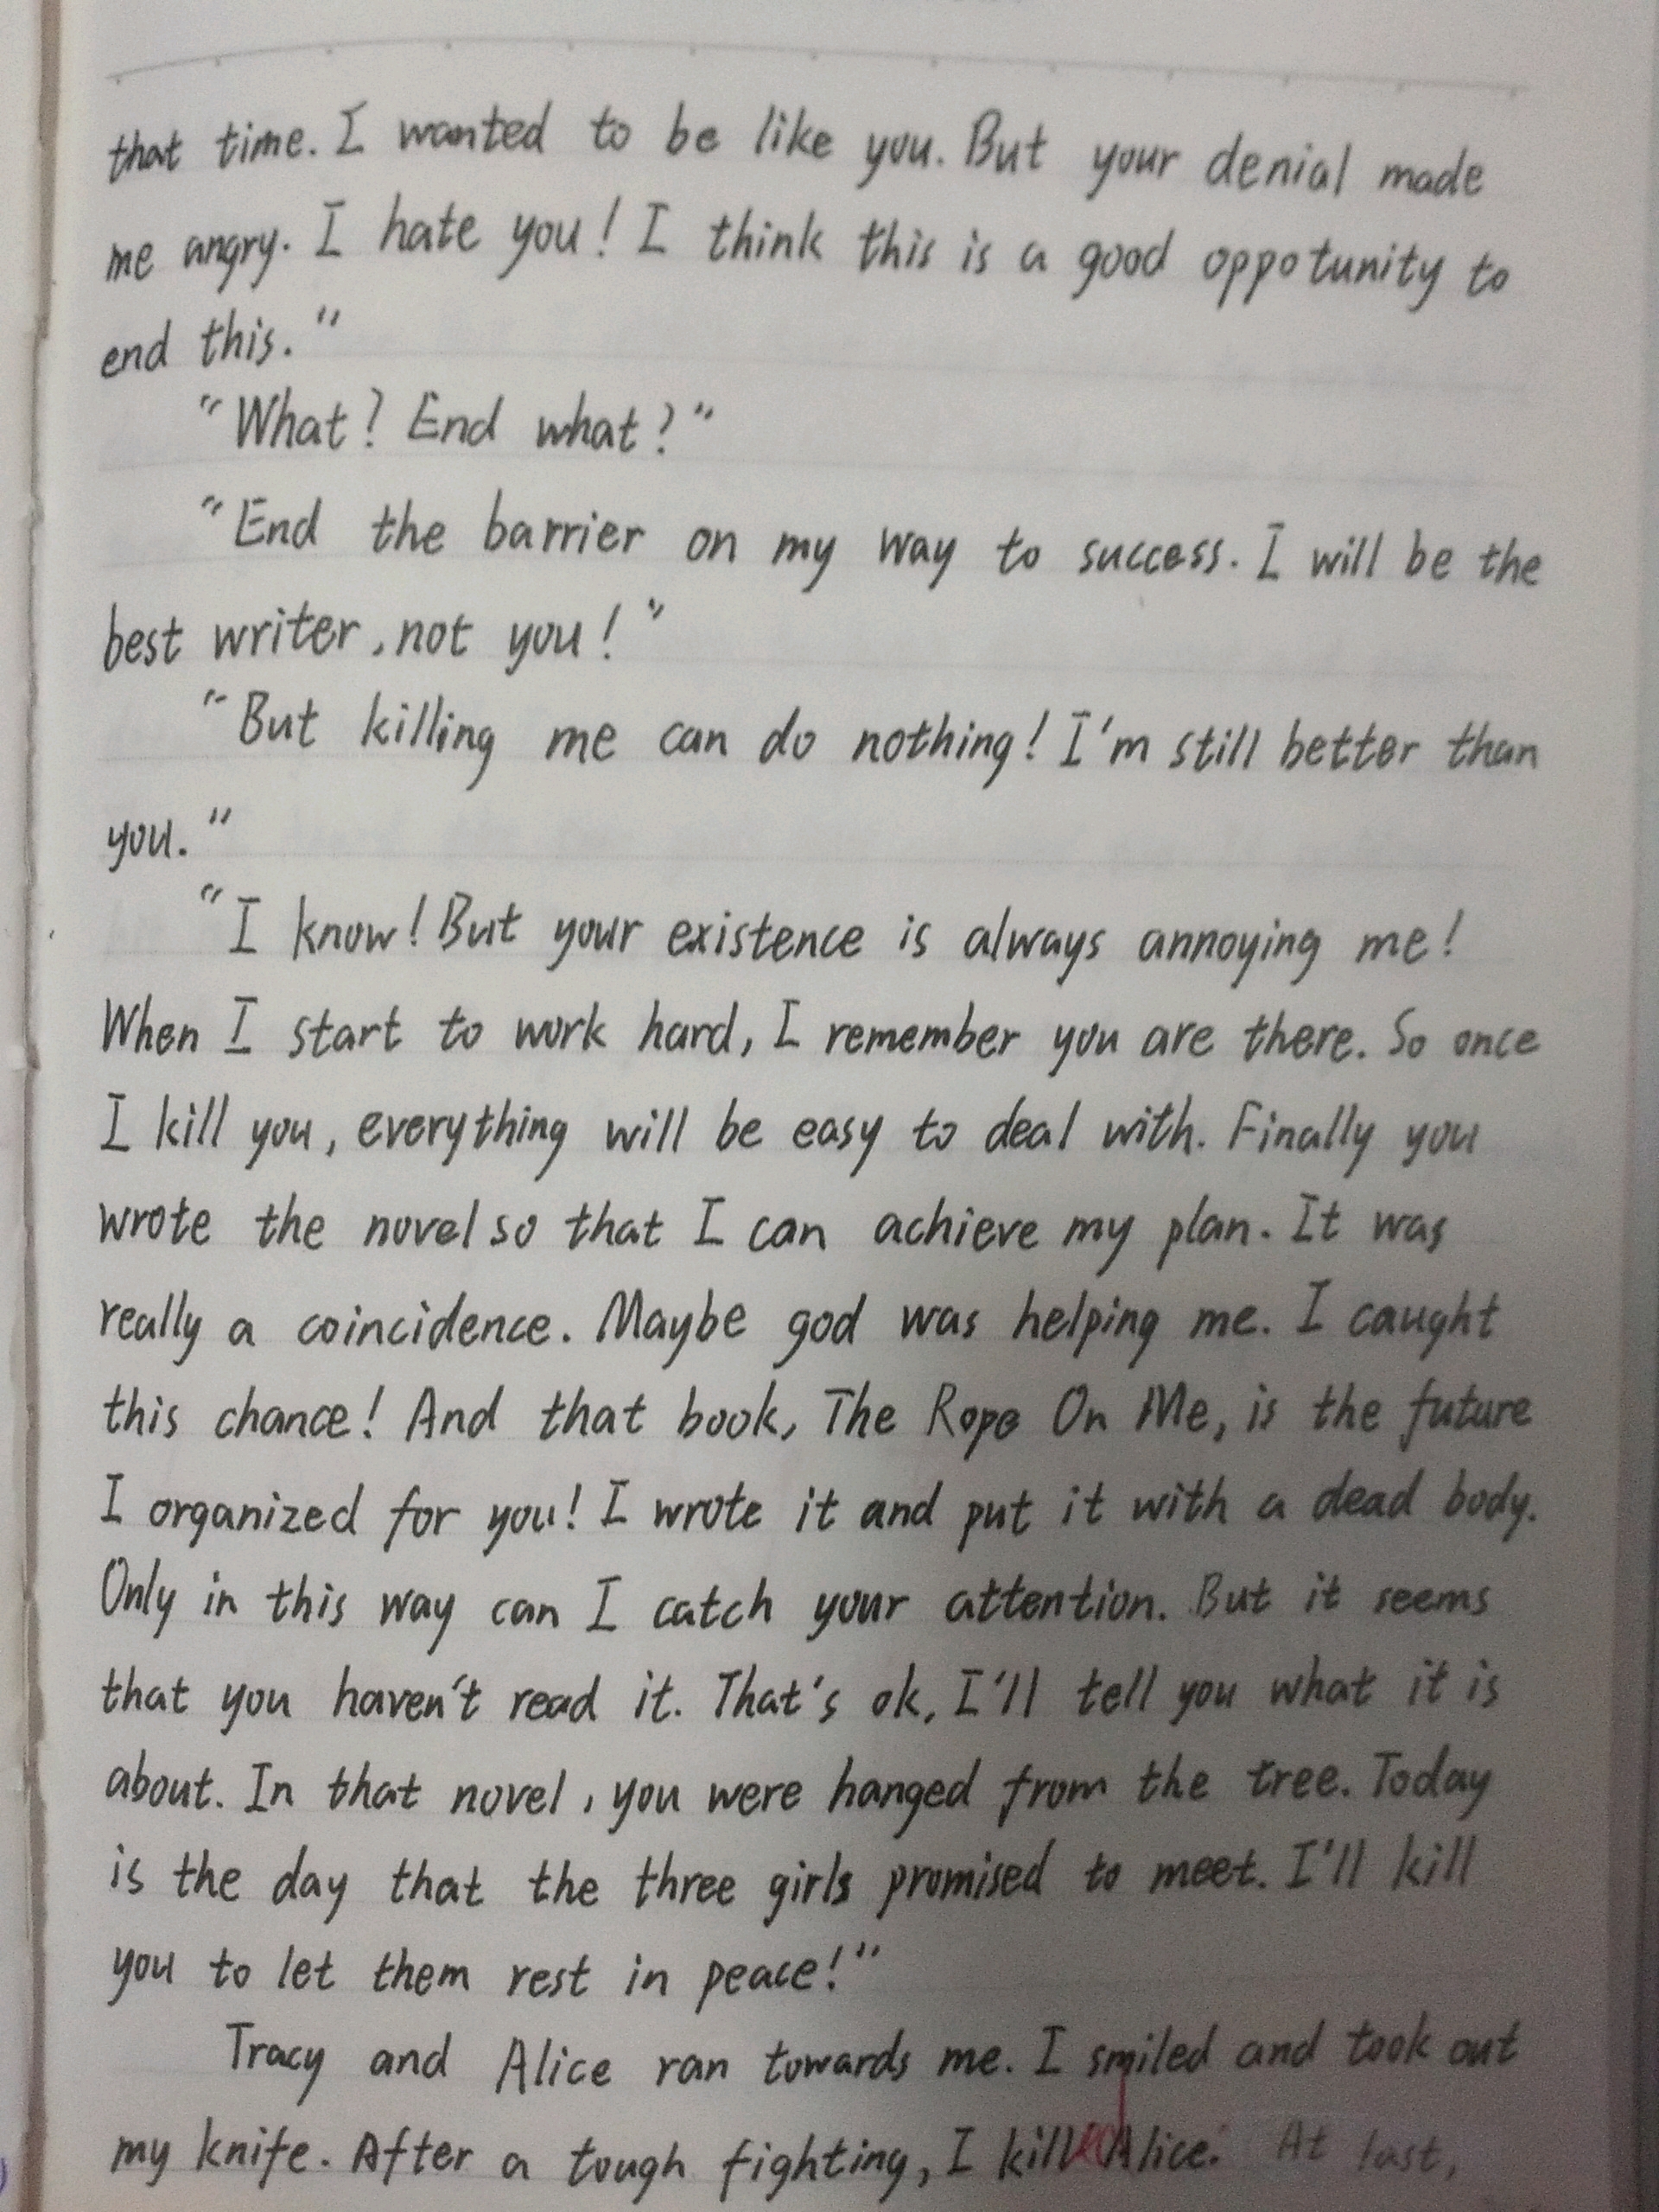 that time. I wanted to be like you. But your denial made
me angry. I hate you! I think this is a good oppotunity to
end this."
"What? End what?"
"End the barrier on my way to success. I will be the
best writer, not you!"
"But killing me can do nothing! I'm still better than
you."
"I know! But your existence is always annoying me!
When I start to work hard, I remember you are there. So once
I kill you, everything will be easy to deal with. Finally you
wrote the novel so that I can achieve my plan. It was
really a coincidence. Maybe god was helping me. I caught
this chance! And that book, The Rope On Me, is the future
I organized for you! I wrote it and put it with a dead body.
Only in this way can I catch your attention. But it seems
that you haven't read it. That's ok, I'll tell you what it is
about. In that novel, you were hanged from the tree. Today
is the day that the three girls promised to meet. I'll kill
you to let them rest in peace!"
Tracy and Alice ran towards me. I smiled and took out
my knife. After a tough fighting, I killed Alice. At last,